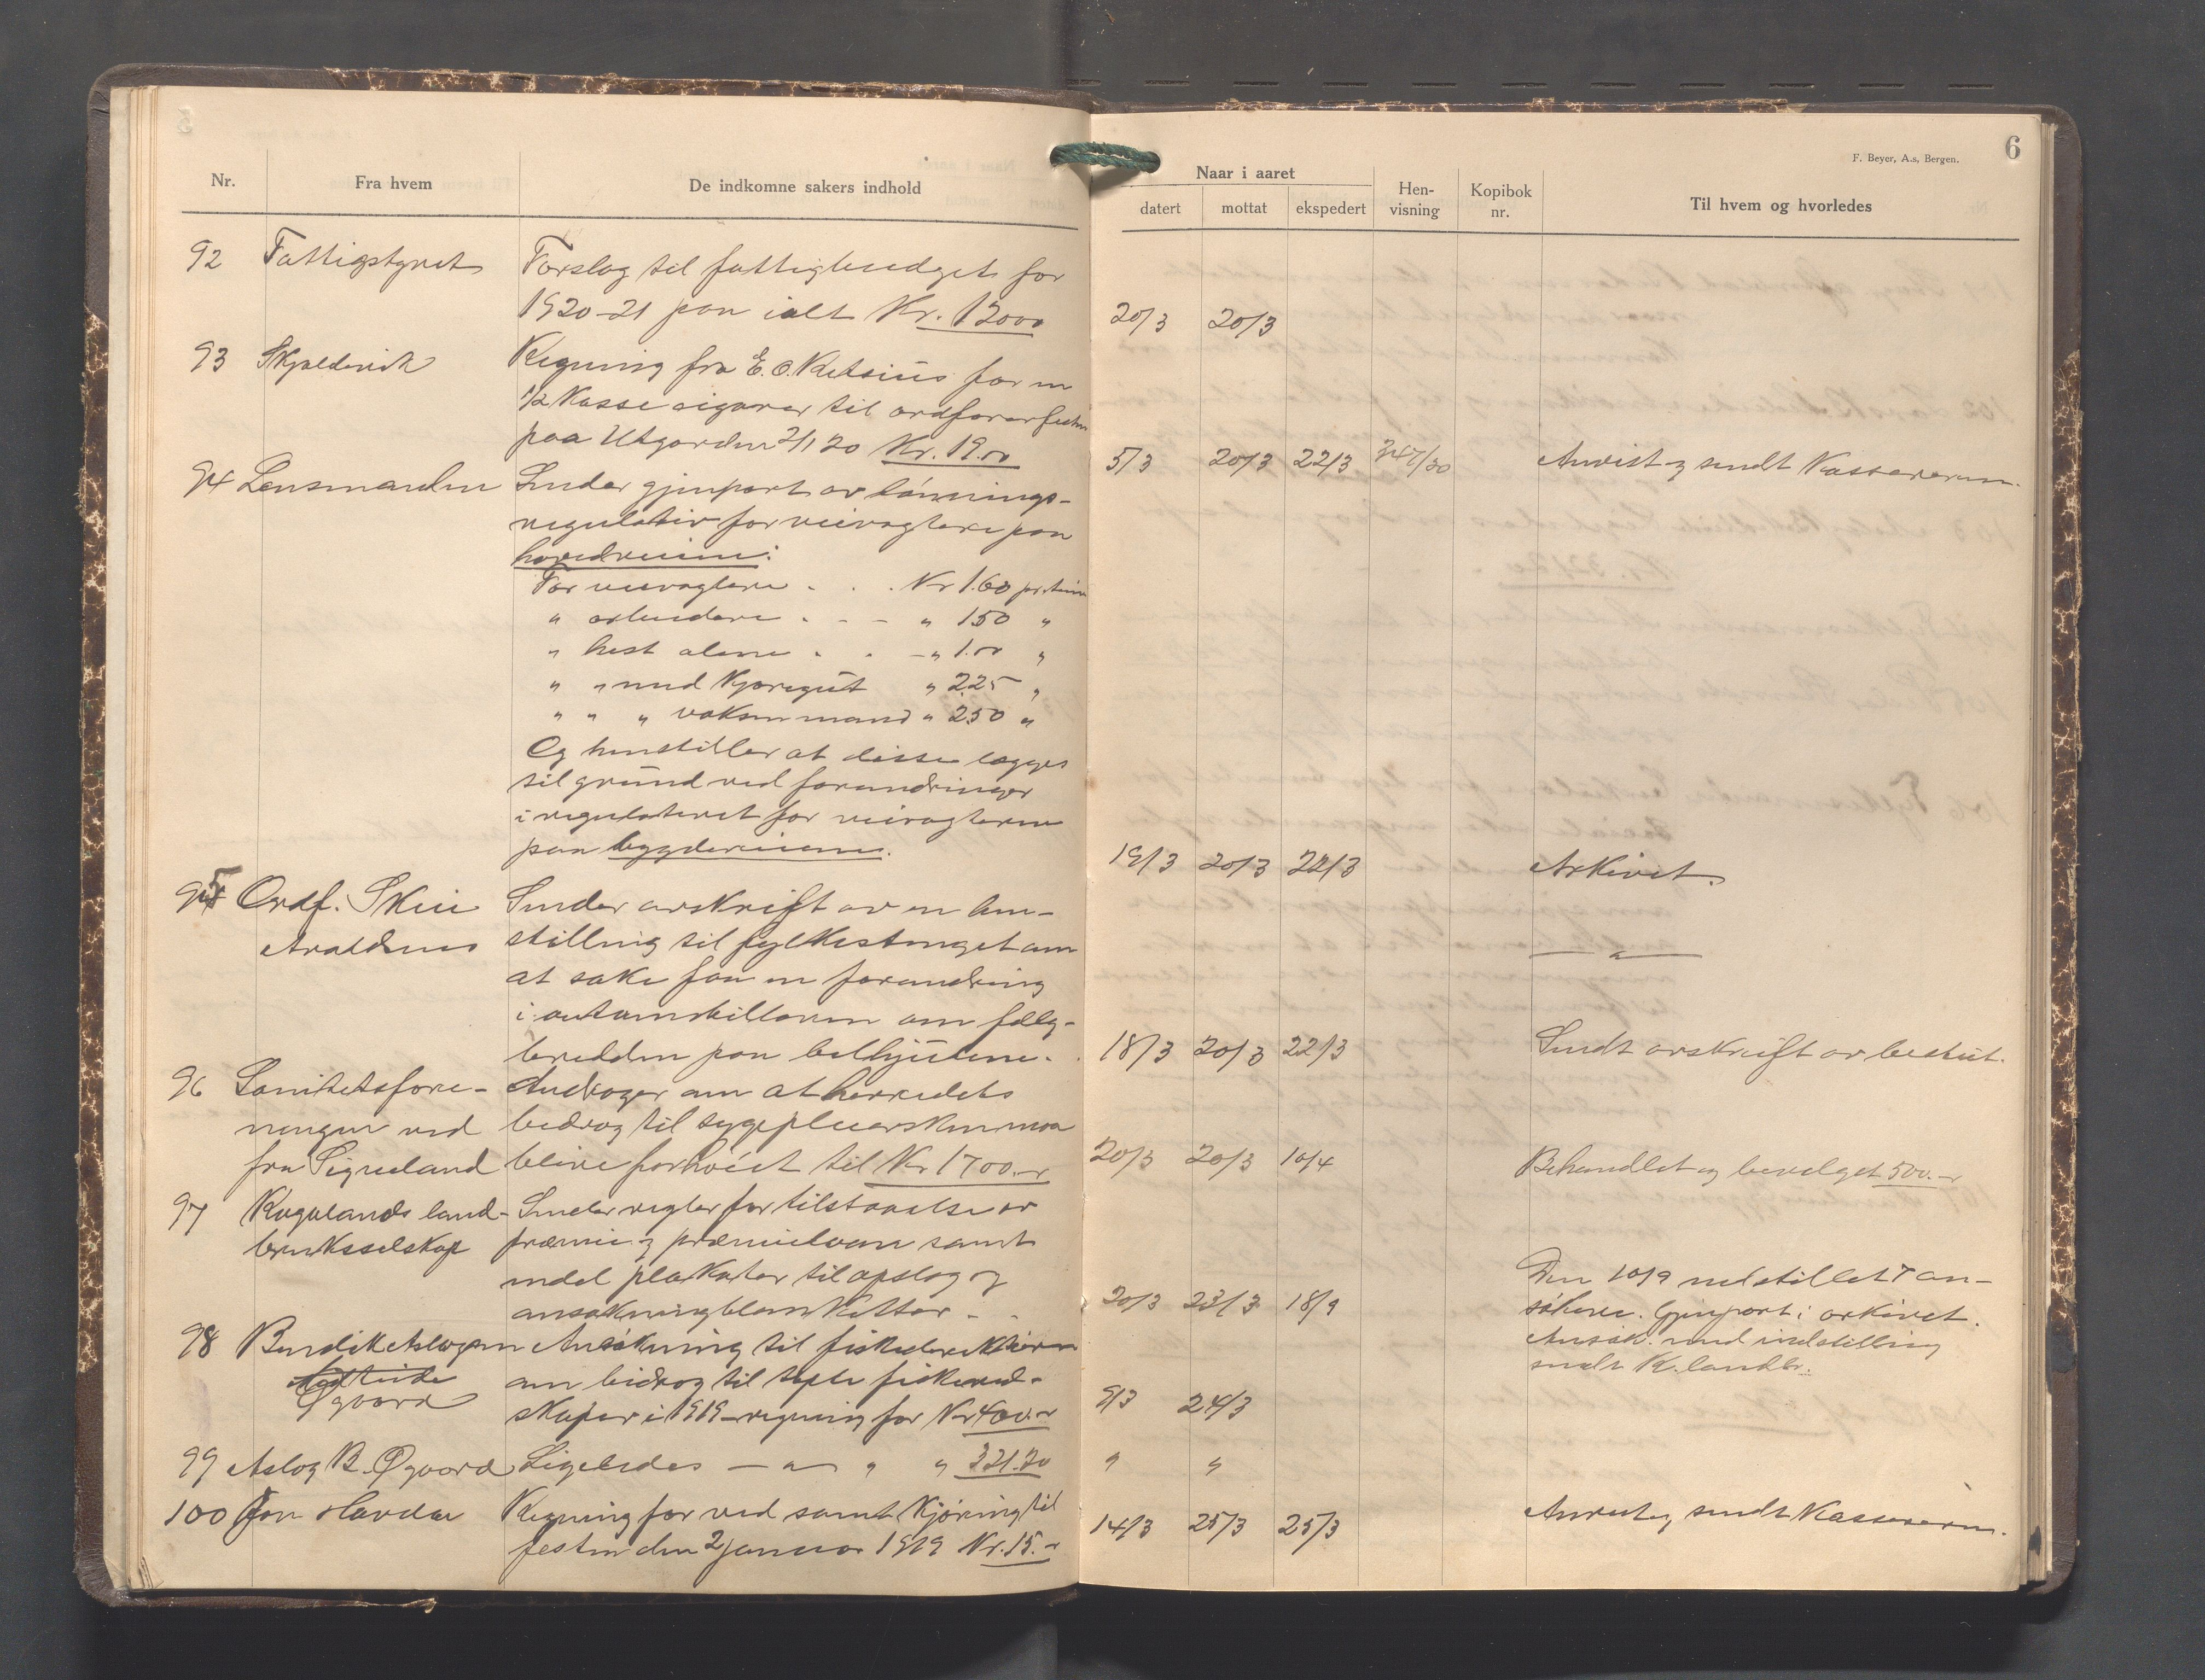 6
F. Beyer, A.s, Bergen.
Nr. Fra hvem De indkomne sakers indhold
Naar i aaret
datert mottat ekspedert Hen-visning Kopibok nr. Til hvem og hvorledes
92 Fattigstyret Forslag til fattigbudget for
1920-21 paa ialt Kr. 12000 20/3 20/3
93 Skjoldevik Regning fra E. O. Retsius for en
1/2 Kasse cigarer til ordførerfesten
paa Utgarden 2/1 20 Kr. 19.00 5/3 20/3 22/3 Anvist og sendt Kassereren.
94 Lensmanden Sender gjenpart av lønnings-
regulativ for veivogtere paa
hovedveiene:
For veivogtere . . . Kr 1.60 pr. time
" arbeidere . - - " 1.50 "
" hest alene . . - " 1.00 "
" " med Kjøregut " 2.25 "
" " " voksen mand " 2.50 "
Og henstiller at disse lægges
til grund ved forandringer
i regulativet for veivogterne
paa bygdeveiene. 19/3 20/3 22/3 Arkivet.
95 Ordf. Skeie Sender avskrift av en hen-
stilling til fylkestinget om — " —
at søke faa en forandring
i
bredden paa belhjulene. 18/3 20/3 22/3 Sendt avskrift av beslut.
96 Sanitetsfore- Andrager om at herredets
ningen ved bidrag til sygepleiersken maa
fru Signeland blive forhøiet til Kr 1700.- 20/3 20/3 10/4 Behandlet og bevilget 500.-
97 Rogalands land- Sender regler for tilstaaelse av
bruksselskap præmie og præmielaan samt
endel plakater til opslag og
ansøkningblanketter - . 20/3 23/3 18/9
Den 10/9 indstillet 7 an-
søkere. Gjenpart i arkivet.
Ansøk. med indstilling
sendt R. landbr.
98 Bendik Aslagsen Ansøkning til fiskeridirektøren
Øgaard om bidrag til tapte fiskered-
skaper i 1919 - regning for Kr 400.- 9/3 24/3
99 Aslag B. Øgaard Ligeledes — " — " " 321.20 " "
100 Jon Havdal Regning for ved samt Kjøring til
festen den 2 januar 1919 Kr. 15.- 14/3 25/3 25/3 Anvist og sendt Kassereren.